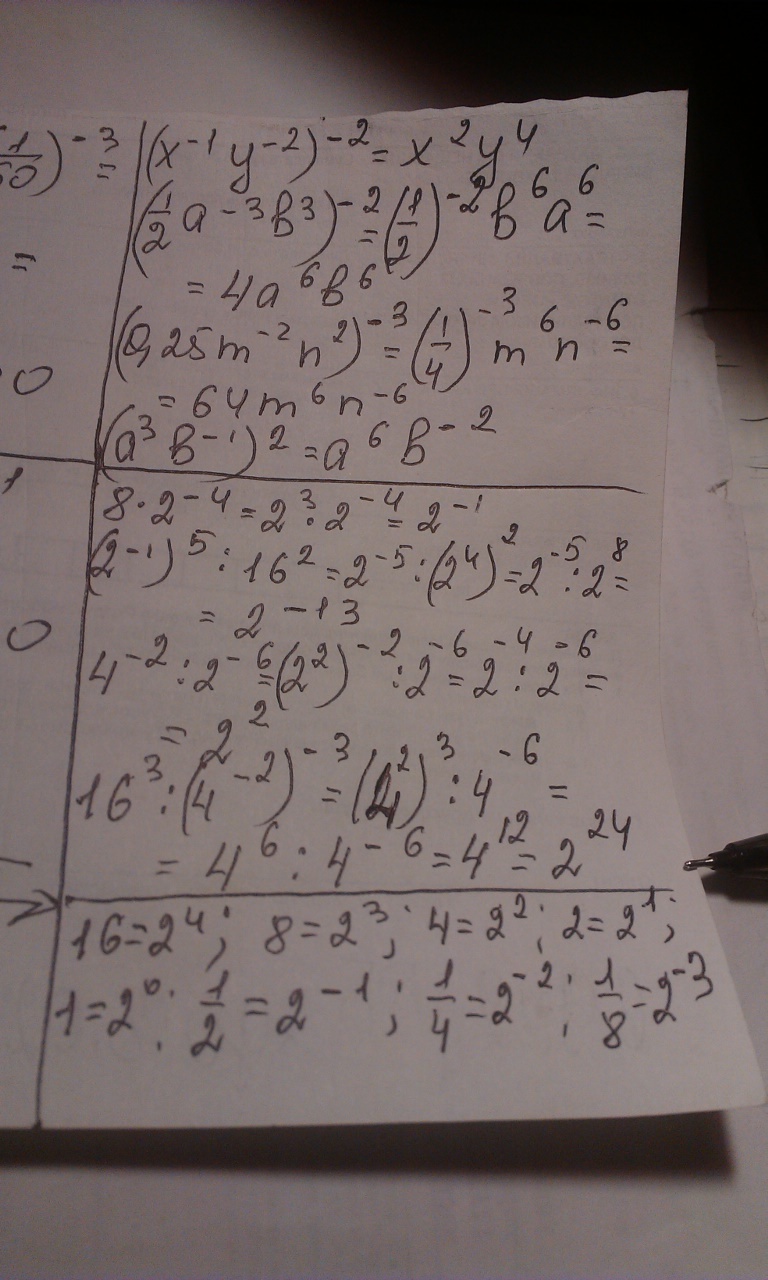 (1/50)⁻³ =
=
0
1
0
(x⁻¹y⁻²)⁻² = x²y⁴
(1/2 a⁻³b³)⁻² = (1/2)⁻² b⁶a⁶ =
= 4a⁶b⁶
(0,25m⁻²n²)⁻³ = (1/4)⁻³ m⁶n⁻⁶ =
= 64m⁶n⁻⁶
(a³b⁻¹)² = a⁶b⁻²
8·2⁻⁴ = 2³·2⁻⁴ = 2⁻¹
(2⁻¹)⁵ : 16² = 2⁻⁵ : (2⁴)² = 2⁻⁵ : 2⁸ =
= 2⁻¹³
4⁻² : 2⁻⁶ = (2²)⁻² : 2⁻⁶ = 2⁻⁴ : 2⁻⁶ =
= 2²
16³ : (4⁻²)⁻³ = (4²)³ : 4⁻⁶ =
= 4⁶ : 4⁻⁶ = 4¹² = 2²⁴
16=2⁴; 8=2³; 4=2²; 2=2¹;
1=2⁰; 1/2=2⁻¹; 1/4=2⁻²; 1/8=2⁻³